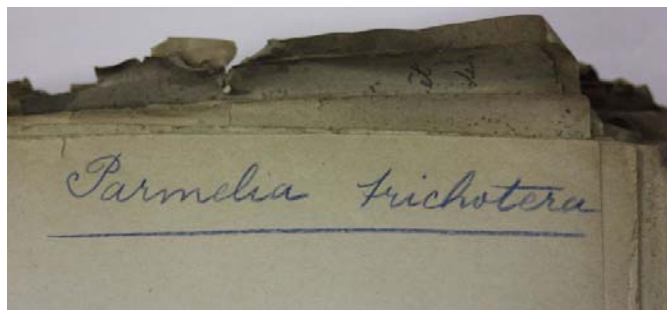 et
Parmelia trichotera